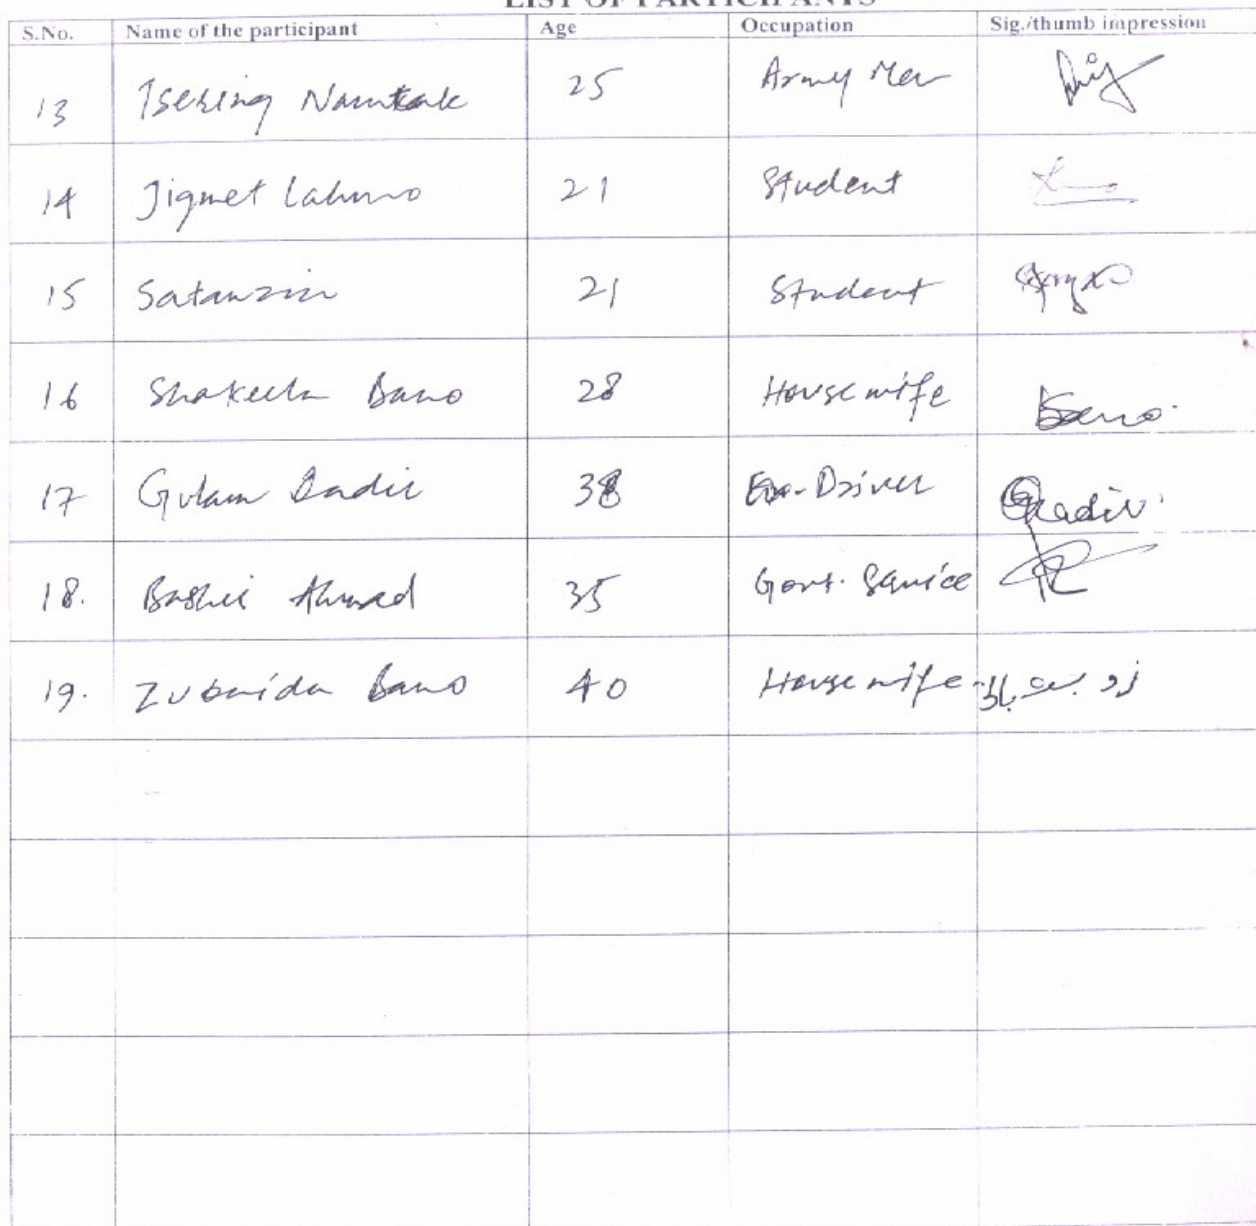 LIST OF PARTICIPANTS
S.No. Name of the participant Age Occupation Sig./thumb impression
13 Tsering Namtak 25 Army Men
14 Jigmet Lahmo 21 Student
15 Satanzin 21 Student
16 Shakeela Bano 28 Housewife Bano.
17 Gulam Qadir 38 Driver Qadir.
18. Bashir Ahmad 35 Govt. Service
19. Zubaida Bano 40 Housewife